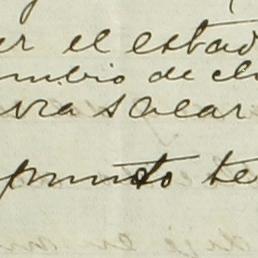 er el estad
mbio de cli
via salar
punto te